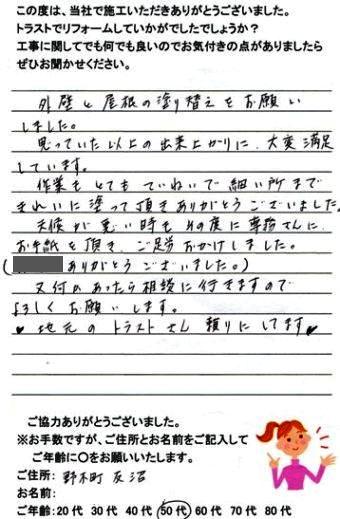 この度は、当社で施工いただきありがとうございました。
トラストでリフォームしていかがでしたでしょうか？
工事に関してでも何でも良いのでお気付きの点がありましたら
ぜひお聞かせください。
外壁と屋根の塗り替えをお願い
しました。
思っていた以上の出来上がりに、大変満足
しています。
作業もとてもていねいで細い所まで
きれいに塗って頂きありがとうございました。
天候が悪い時もその度に専務さんに
お手紙を頂き、ご足労おかけしました。
(ありがとうございました。)
又何かあったら相談に行きますので
よろしくお願いします。
♥地元のトラストさん頼りにしてます♥
ご協力ありがとうございました。
※お手数ですが、ご住所とお名前をご記入して
ご年齢に○をお願いいたします。
ご住所: 野木町 友沼
お名前:
ご年齢:20代 30代 40代 50代 60代 70代 80代